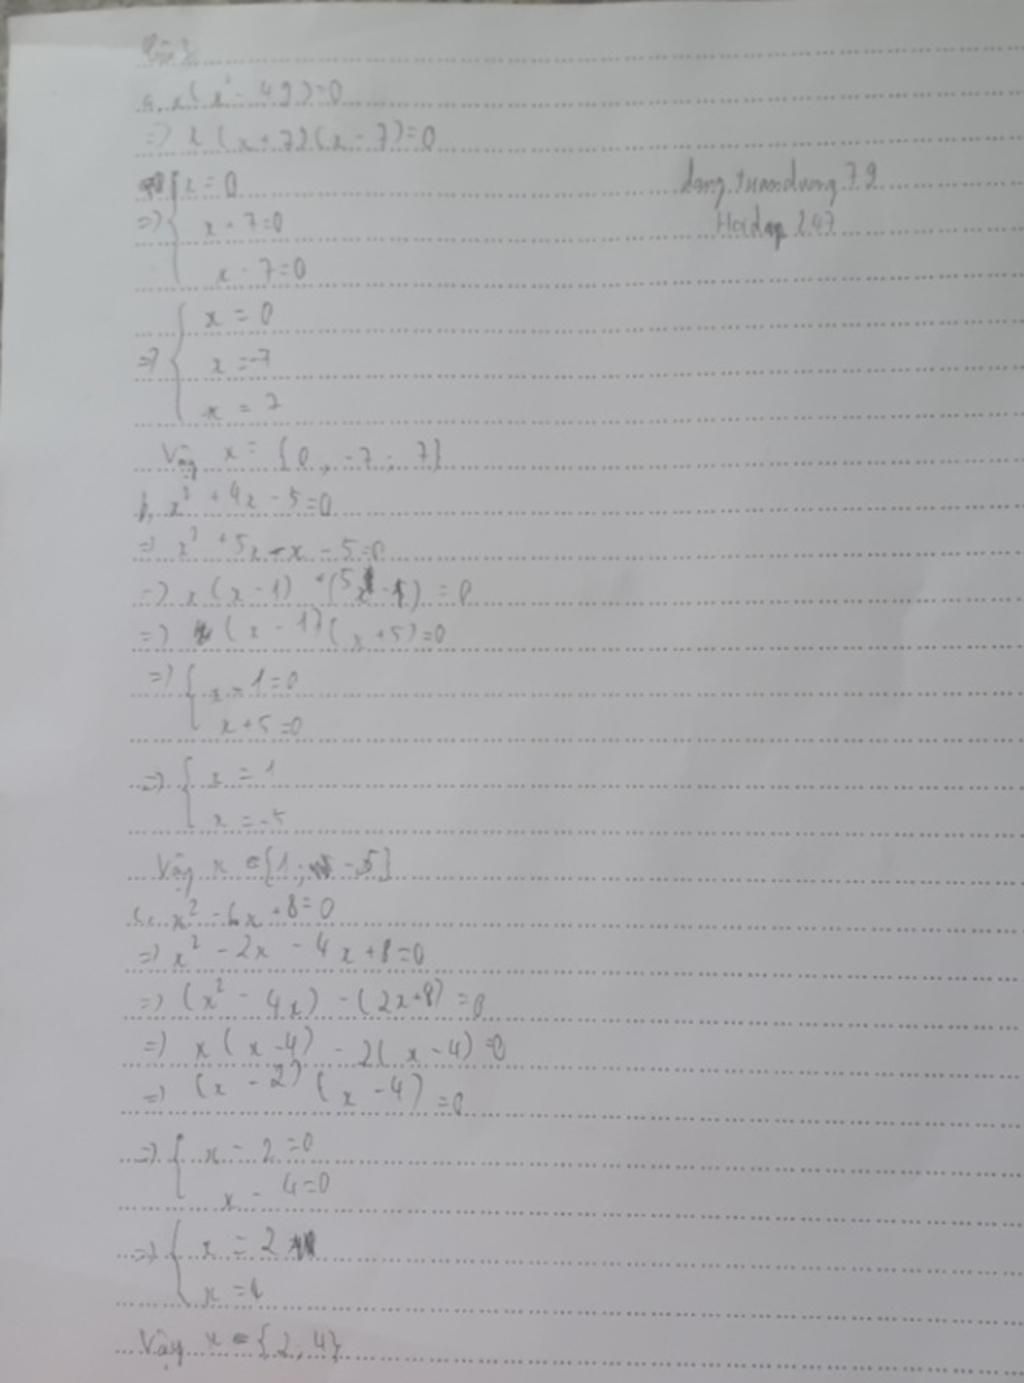 Bài 3
a, x(x² - 49)=0
=> x(x+7)(x-7)=0
x=0
=> x+7=0
x-7=0
x=0
=> x=-7
x=7
Vậy x={0, -7; 7}
b, x² +4x-5=0
=> x² +5x-x-5=0
=> x(x-1) +(5x-5)=0
=> (x-1)(x+5)=0
=> x-1=0
x+5=0
=> x=1
x=-5
Vậy x ∈{1; -5}
c, x²-6x+8=0
=> x²-2x-4x+8=0
=> (x²-4x)-(2x+8)=0
=> x(x-4)-2(x-4)=0
=> (x-2)(x-4)=0
=> x-2=0
x-4=0
=> x=2
x=4
Vậy x ∈{2, 4}
Hoidap 247